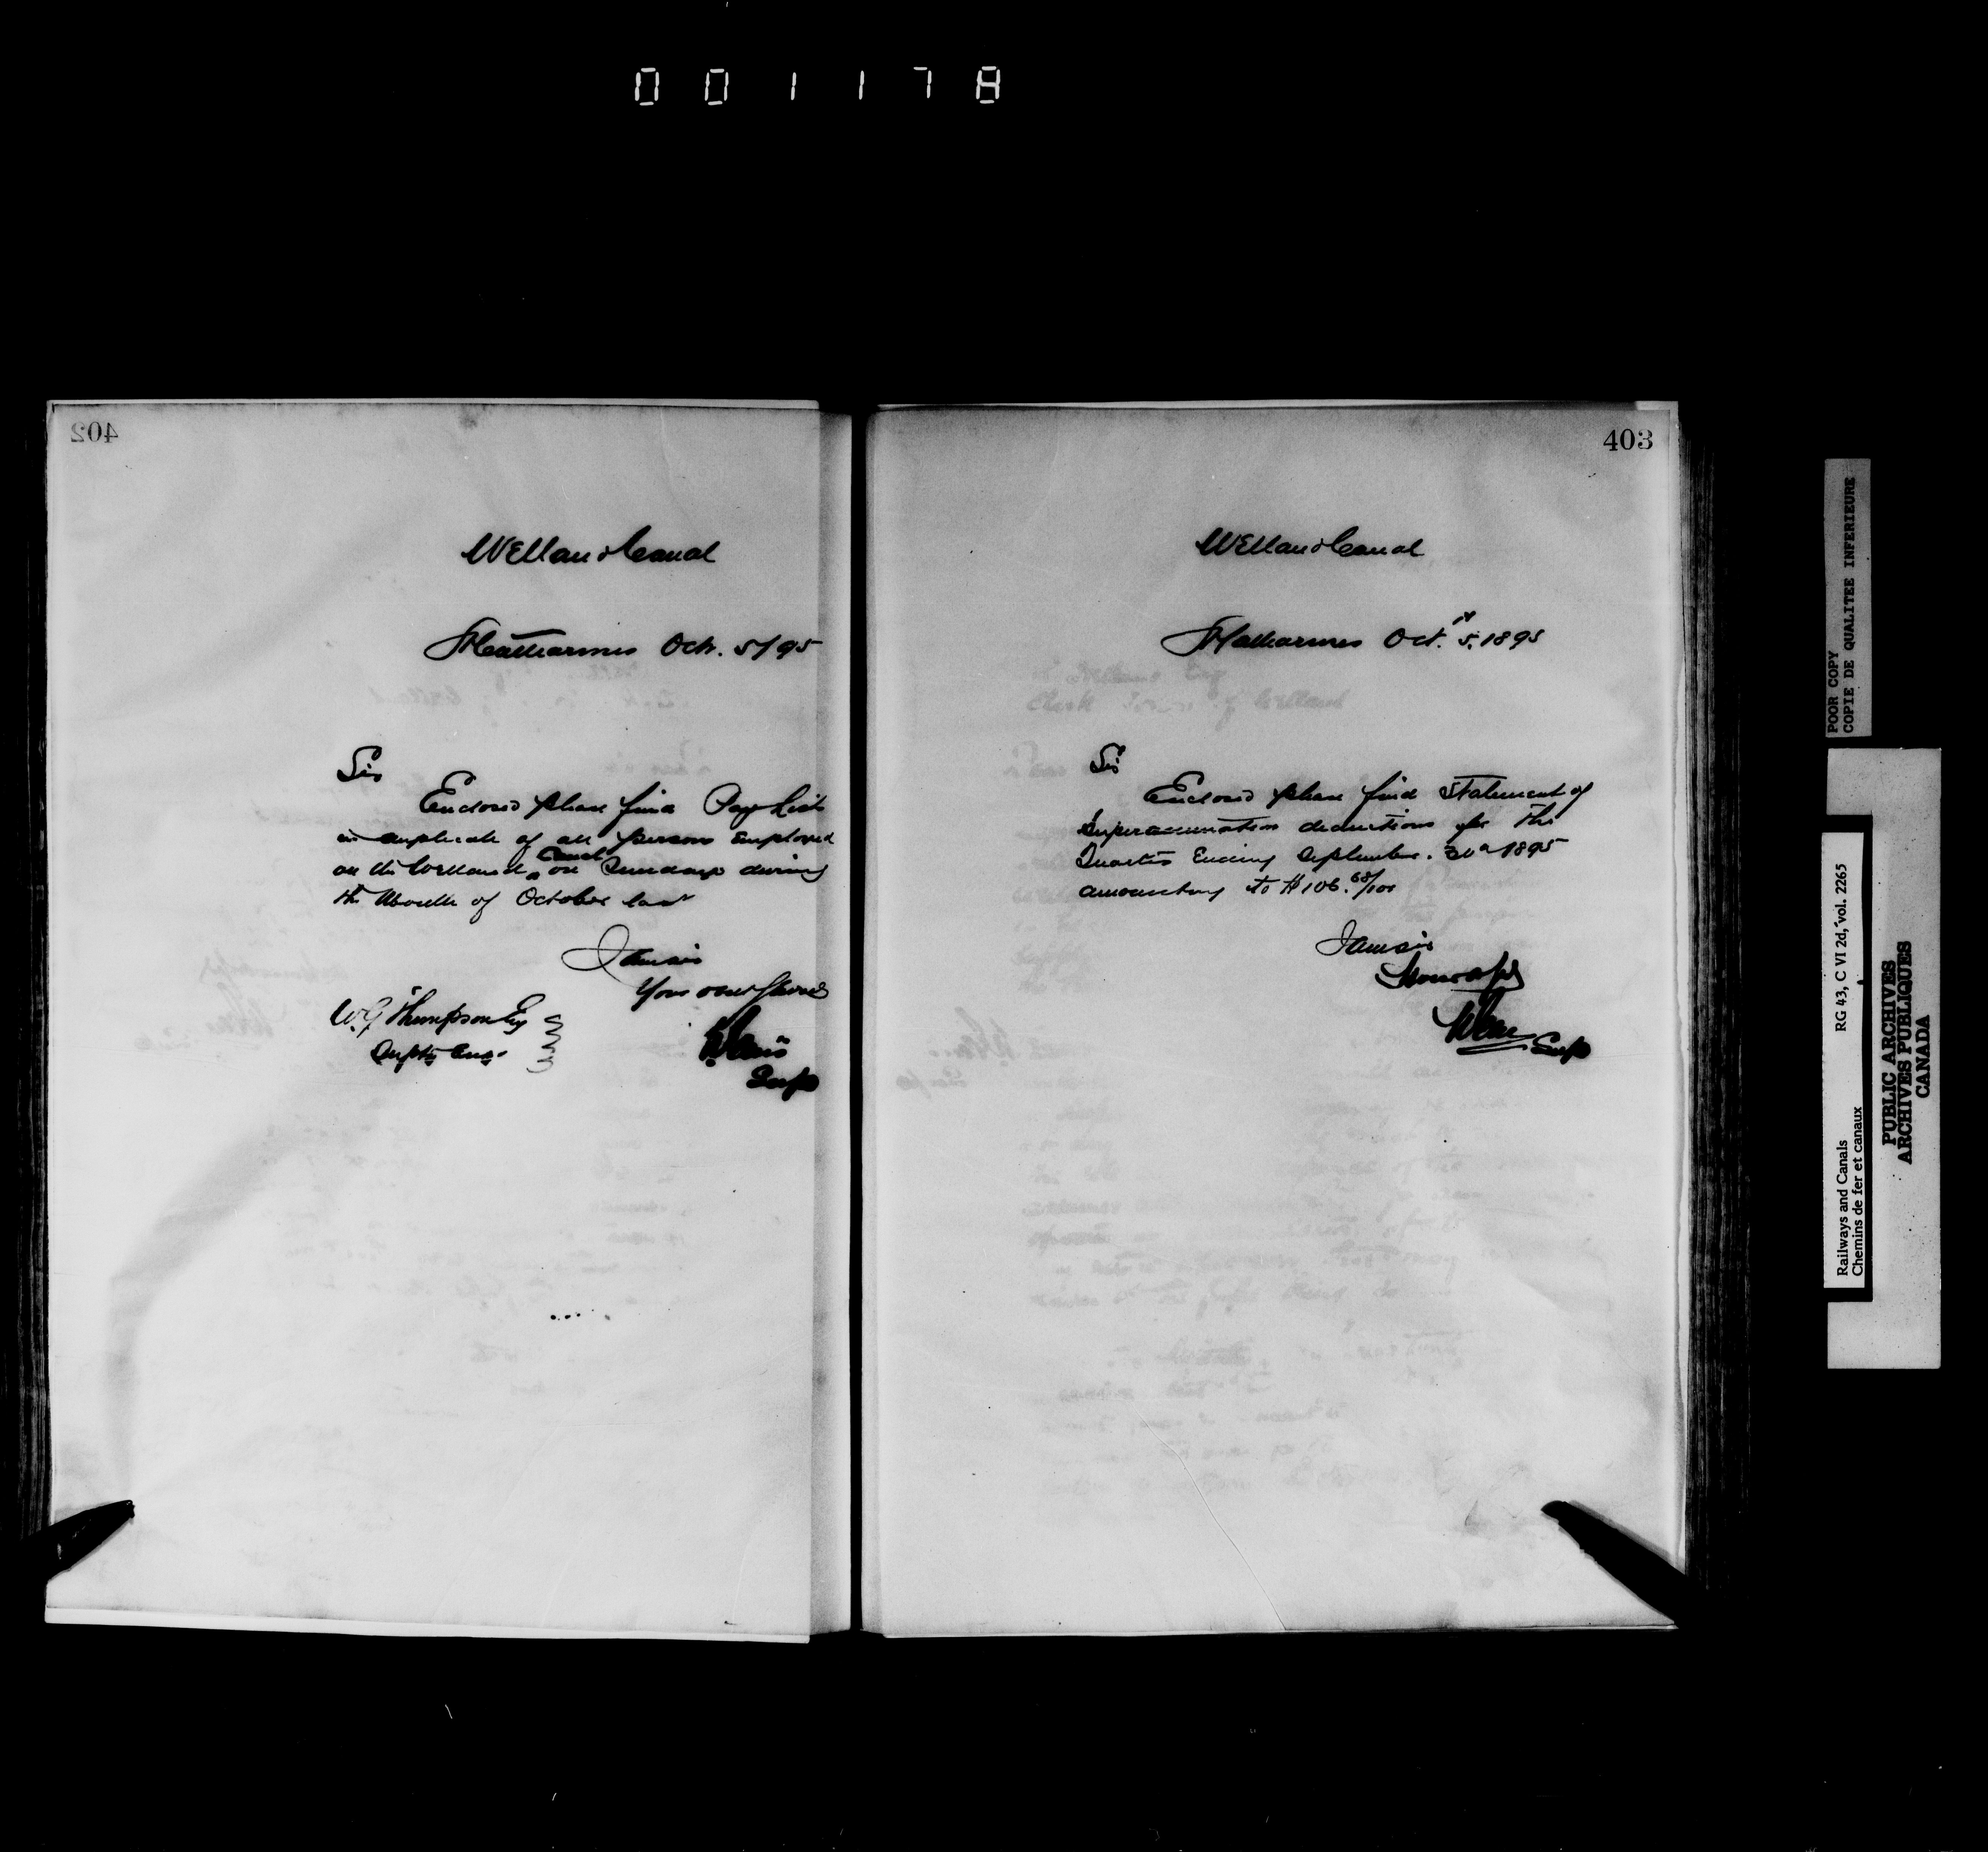 001178
402
Welland Canal
St Catharines Oct. 5/95
Sir
Enclosed please find Pay List
in duplicate of all persons employed
on the Welland Canal on Sundays during
the Month of October last
I am sir
Your obedt Servt
W.G. Thompson Esq
Suptg Eng.
Supt
403
Welland Canal
St Catharines Oct. 5, 1895
Sir
Enclosed please find Statement of
Superannuation deductions for the
Quarter Ending September. 30th 1895
amounting to $106.68/100
I am sir
Supt
POOR COPY
COPIE DE QUALITEE INFERIEURE
Railways and Canals RG 43, C VI 2d, vol. 2265
Chemins de fer et canaux
PUBLIC ARCHIVES
ARCHIVES PUBLIQUES
CANADA